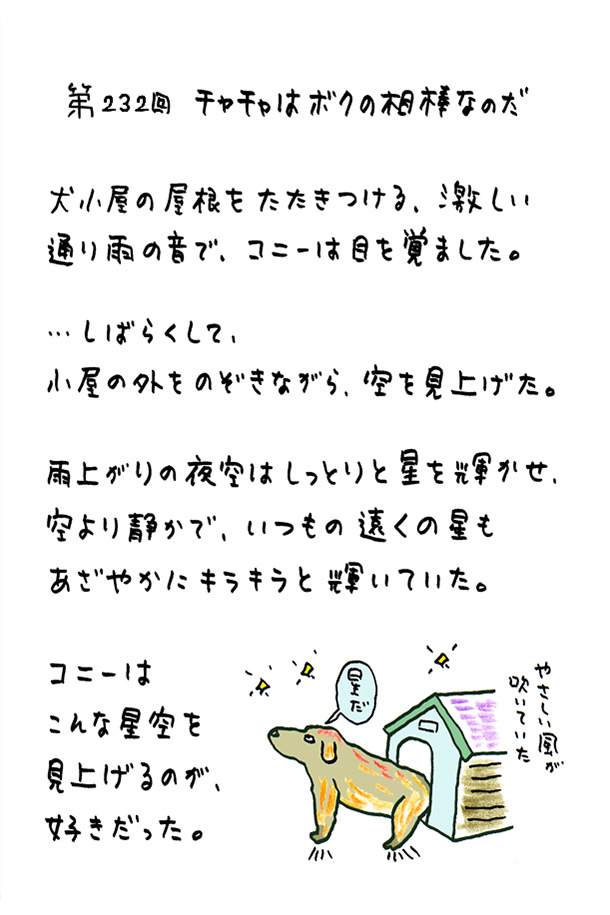 第232回 チャチャはボクの相棒なのだ
犬小屋の屋根をたたきつける、激しい
通り雨の音で、コニーは目を覚ました。
…しばらくして、
小屋の外をのぞきながら、空を見上げた。
雨上がりの夜空はしっとりと星を輝かせ、
空より静かで、いつもの遠くの星も
あざやかにキラキラと輝いていた。
コニーは
こんな星空を
見上げるのが、
好きだった。
星だ
やさしい風が
吹いていた